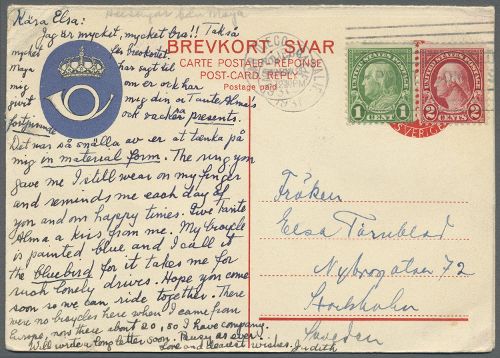 Kära Elsa:
Jag är mycket, mycket bra!! Tak så
mycket för brevkortet.
Maja har sagt til
mig om er ok har
givit mig din o Tante Alma's
förtjusande ock vackra presents.
Det var så snälla av er at tänka på
mig in material form. The ring you
gave me I still wear on my finger
and reminds me each day of
you and our happy times. Give Tante
Alma a kiss from me. My bicycle
is painted blue and I call it
the bluebird for it takes me for
such lonely drives. Hope you come
soon so we can ride together. There
were no bicycles here when I came from
Europe, now there about 20, so I have company.
Will write a long letter soon. as ever.
Love and dearest wishes. Judith
BREVKORT SVAR
CARTE POSTALE - RÉPONSE
POST-CARD REPLY
Postage paid
UNITED STATES POSTAGE
FRANKLIN
1 CENT 1
UNITED STATES POSTAGE
WASHINGTON
2 CENTS 2
SVERIGE
Fröken
Elsa Törnblad
Nybrogatan 72
Stockholm
Sweden